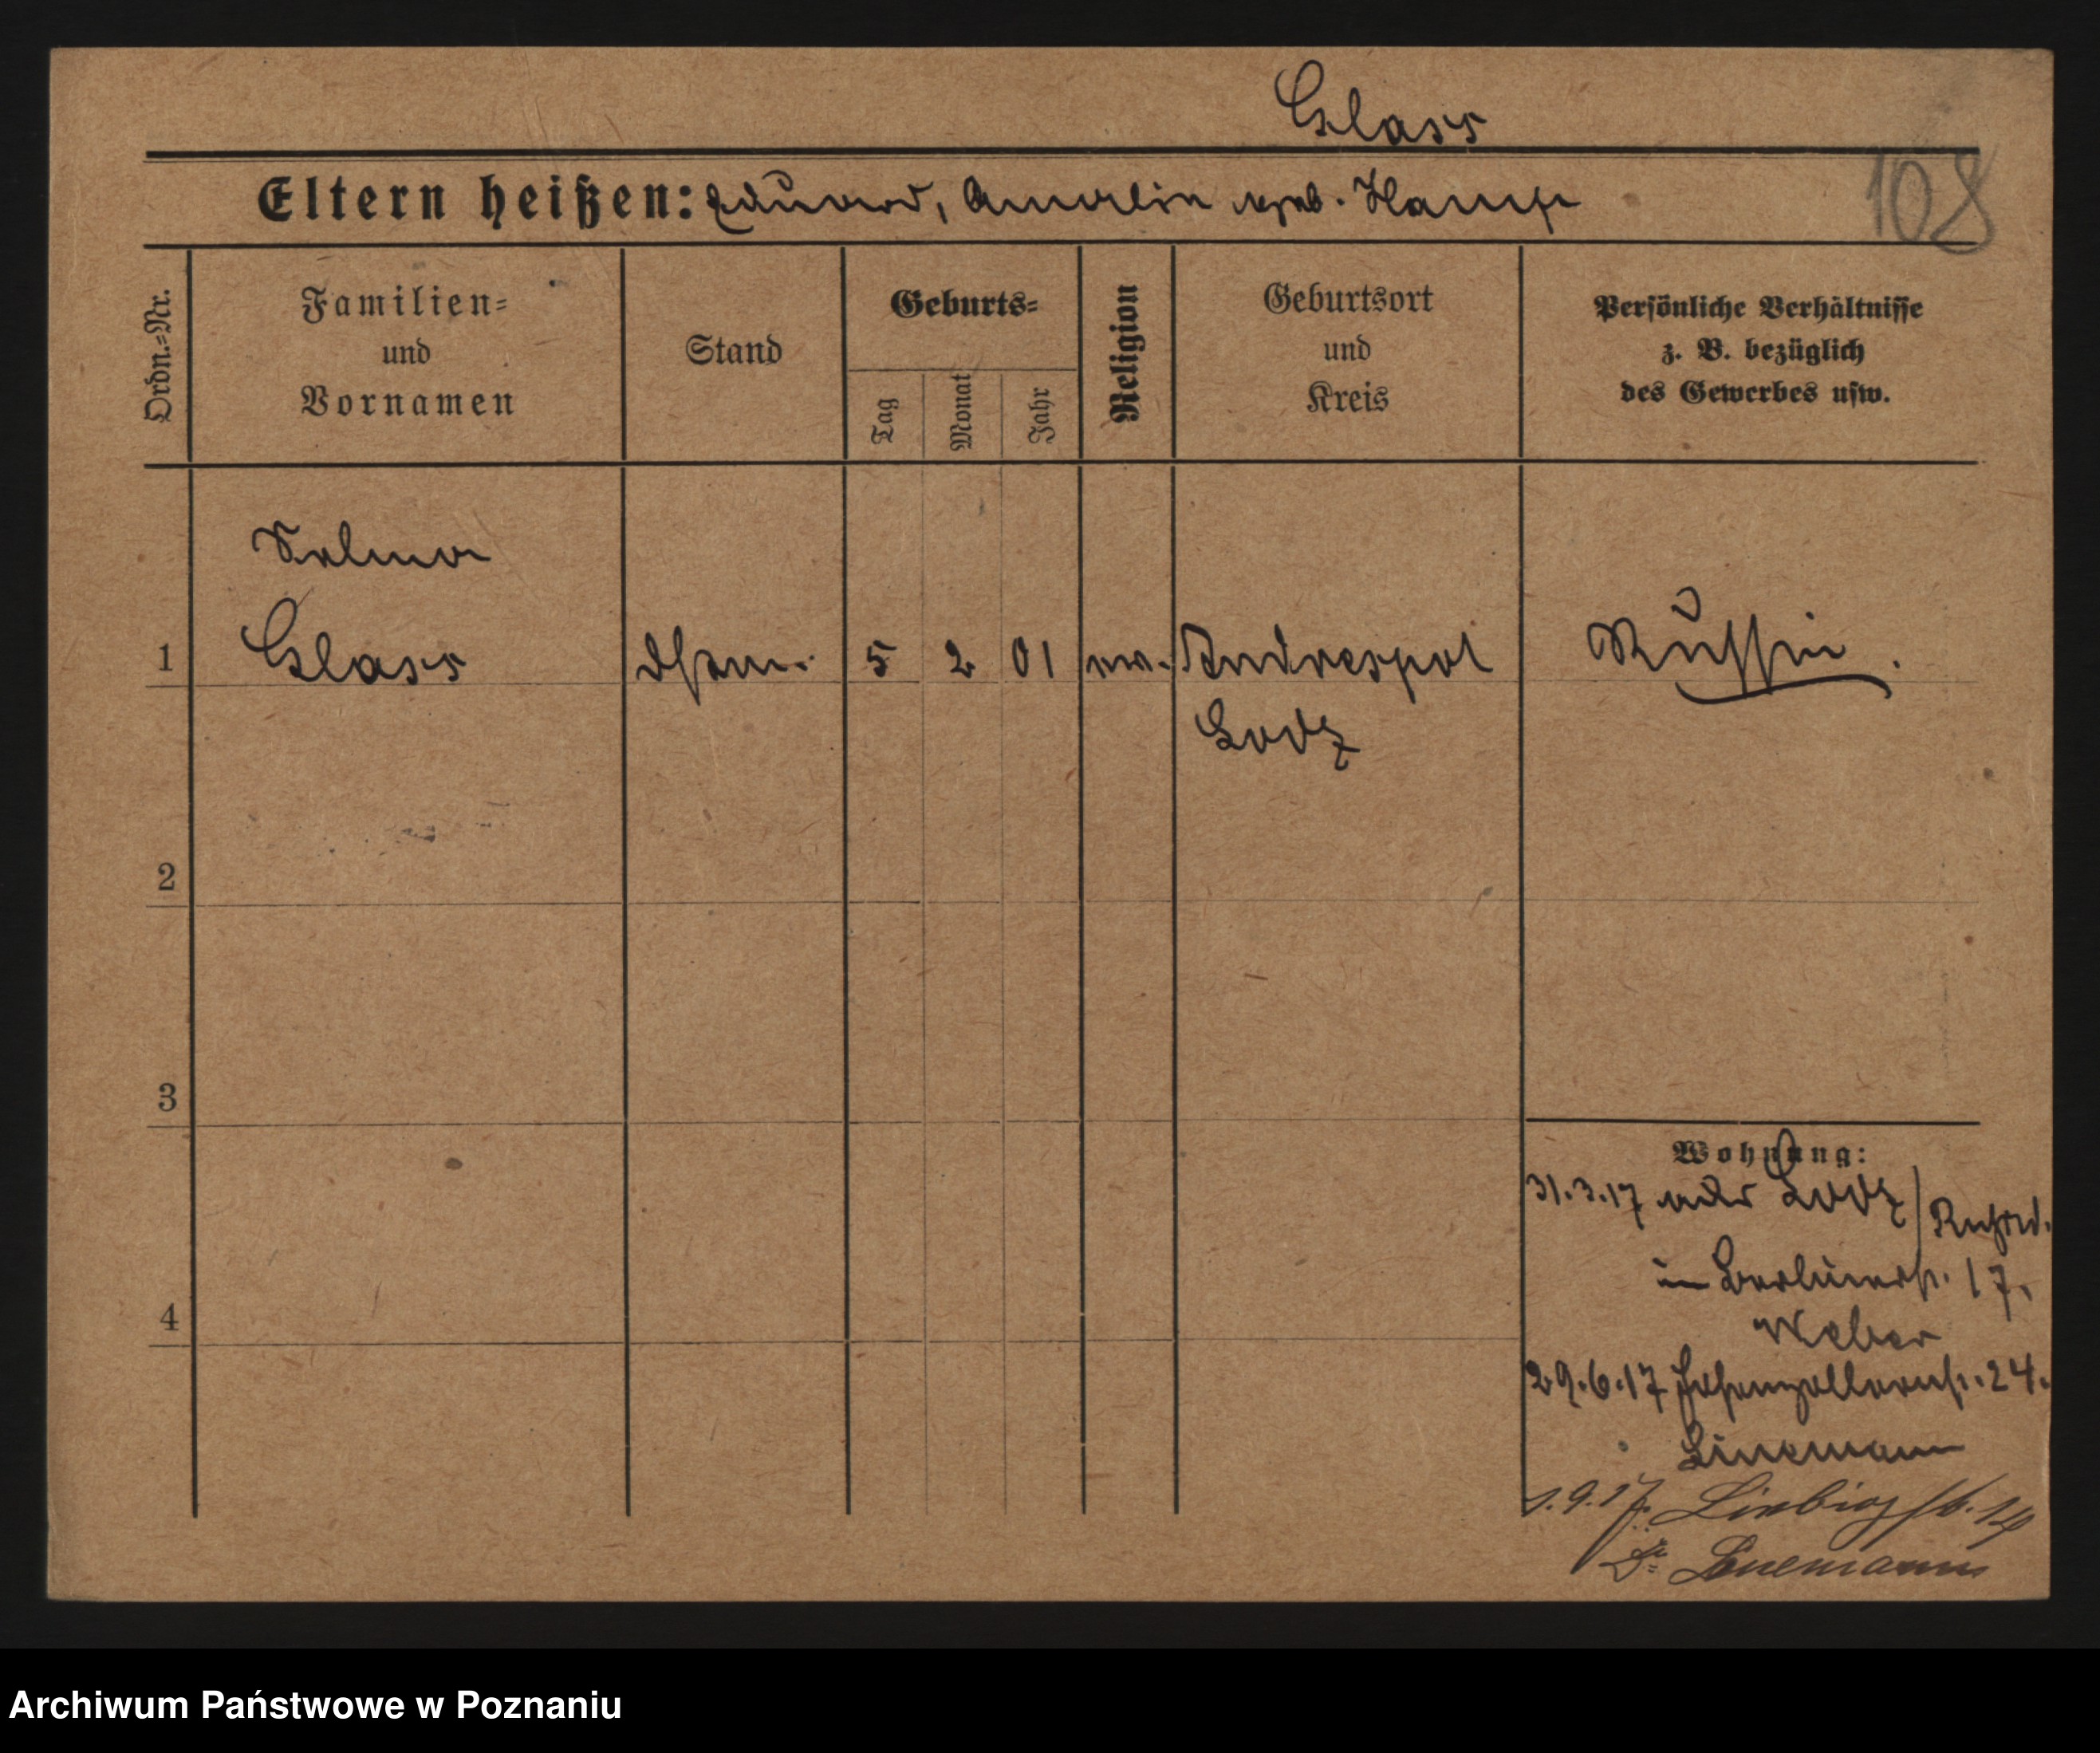 Glass
108
Eltern heißen: Eduard, Amalie geb. Hampe
Ordn.=Nr.
Familien=
und
Vornamen
Stand
Geburts=
Tag
Monat
Jahr
Religion
Geburtsort
und
Kreis
Persönliche Verhältnisse
z. B. bezüglich
des Gewerbes usw.
Selma
1 Glass 5 2 01 Andrespol Russin.
Lodz
2
3
4
Wohnung:
31.3.17 Lodz
Berlinerstr. 17.
Weber
29.6.17 Hohenzollernstr. 24.
Linemann
1.9.17. Liebigstr. 14
Dr Linemann
Archiwum Państwowe w Poznaniu